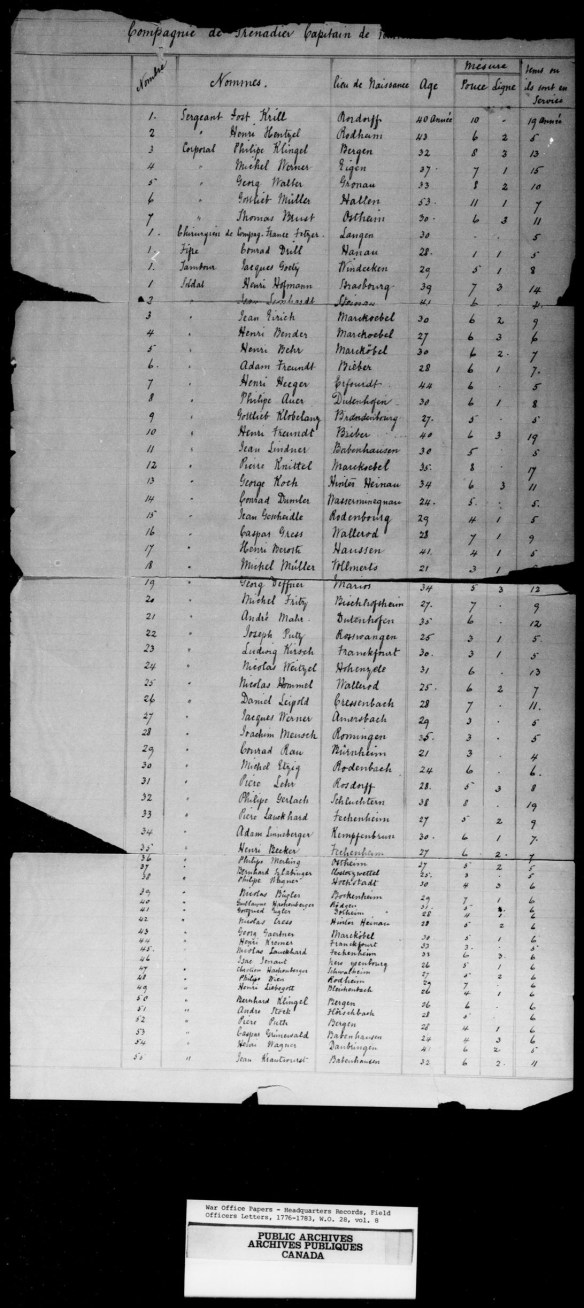 Compagnie de Grenadier Capitain de
Nombre Nommes. Lieu de Naissance Age Mesure Pouce Ligne tems ou ils sont en Service
1. Sergeant Jost Krill Rosdorff 40 Année 10 . 19 Année
2 " Henri Hentzel Rodheim 43 6 2 5
3 Corporal Philipe Klingel Bergen 32 8 3 13
4 " Michel Werner Eigen 37 7 1 15
5 " Georg Walter Gronau 33 8 2 10
6 " Gottliet Müller Hallen 53 11 1 7
7 " Thomas Brust Ostheim 30 6 3 11
1. Chirurgien de Compag. France Langen 30 5
1. Fifre Conrad Drill Hanau 28 1 1 5
1. Tambour Jacques Goety Windecken 29 5 1 8
1 Soldat Henri Hofmann Strasbourg 39 7 3 14
2 " Jean Steinau 41 6
3 " Jean Girich Marckoebel 30 6 2 9
4 " Henri Bender Marckoebel 27 6 3 6
5 " Henri Behr Marcköbel 30 6 2 7
6 " Adam Freundt Bieber 28 6 1 7
7 " Henri Heeger Erfourdt 44 6 . 5
8 " Philipe Auer Dutenhofen 30 6 1 8
9 " Gottlieb Klobelang Brandenbourg 27 5 . 5
10 " Henri Freundt Bieber 40 6 3 19
11 " Jean Lindner Babenhausen 30 5 5
12 " Piere Knittel Marckoebel 35 8 . 17
13 " George Koch Hinter Heinau 34 6 3 11
14 " Conrad Dumler 24 5 . 5
15 " Jean Gosheidle Rodenbourg 29 4 1 5
16 " Caspar Gress Wallerod 28 7 1 9
17 " Henri Haussen 41 4 1 5
18 " Michel Müller Vollmerts 21 3 1
19 " Georg Deffner Marios 34 5 3 12
20 " Michel Fritz Bischhofsheim 27 7 . 9
21 " André Mahr Dutenhofen 35 6 12
22 " Joseph Putz Rosswangen 25 3 1 5
23 " Ludwig Kirsch Franckfourt 30 3 1 5
24 " Nicolas Weitzel Hohenzele 31 6 . 13
25 " Nicolas Hommel Wallerod 25 6 2 7
26 " Daniel Leipold Cressenbach 28 7 . 11
27 " Jacques Werner Amersbach 29 3 . 5
28 " Joachim Mensch Romingen 35 3 . 5
29 " Conrad Rau Bürnheim 21 3 . 4
30 " Michel Etzig Rodenbach 24 6 . 6
31 " Piere Lohr Rosdorff 28 5 3 8
32 " Philipe Gerlach Schluchtern 38 8 . 19
33 " Piere Lauckhard Fechenheim 27 5 2 9
34 " Adam Sunsberger Kempfenbrun 30 6 1 7
35 " Henri Becker Fechenheim 27 6 2 7
36 " Philipe Merling Ostheim 27 5 2 5
37 " Bernhard 25 3 . 5
38 " Philipe Wagner Hochstadt 30 4 3 6
39 " Nicolas Bügler Bockenheim 29 7 1 6
40 " Hachenberger Rödgen 31 5
41 " Gottfried 28 4
42 " Nicolas Cress Hinter Heinau 28 5 2 6
43 " Georg Gaertner Marcköbel 30 5 1 6
44 " Henri Kromer Franckfourt 33 3 . 5
45 " Nicolas Lauckhard Fechenheim 33 6 3 6
46 " Isac Jenant 26 5 1 6
47 " Hachenberger Schwalheim 27 5 2 6
48 " Philipe Dien Rodheim 29 7 6
49 " Henri Liebegott 26 4 1 6
50 " Bernhard Klingel Bergen 26 6 6
51 " Andre Stock Hörschbach 28 5 . 6
52 " Piere Puth Bergen 28 4 1 6
53 " Caspar Grünewald Babenhausen 24 4 3 6
54 " Henri Wagner Daubringen 41 6 2 5
55 " Jean Babenhausen 32 6 2 11
War Office Papers - Headquarters Records, Field
Officers Letters, 1776-1783, W.O. 28, vol. 8
PUBLIC ARCHIVES
ARCHIVES PUBLIQUES
CANADA